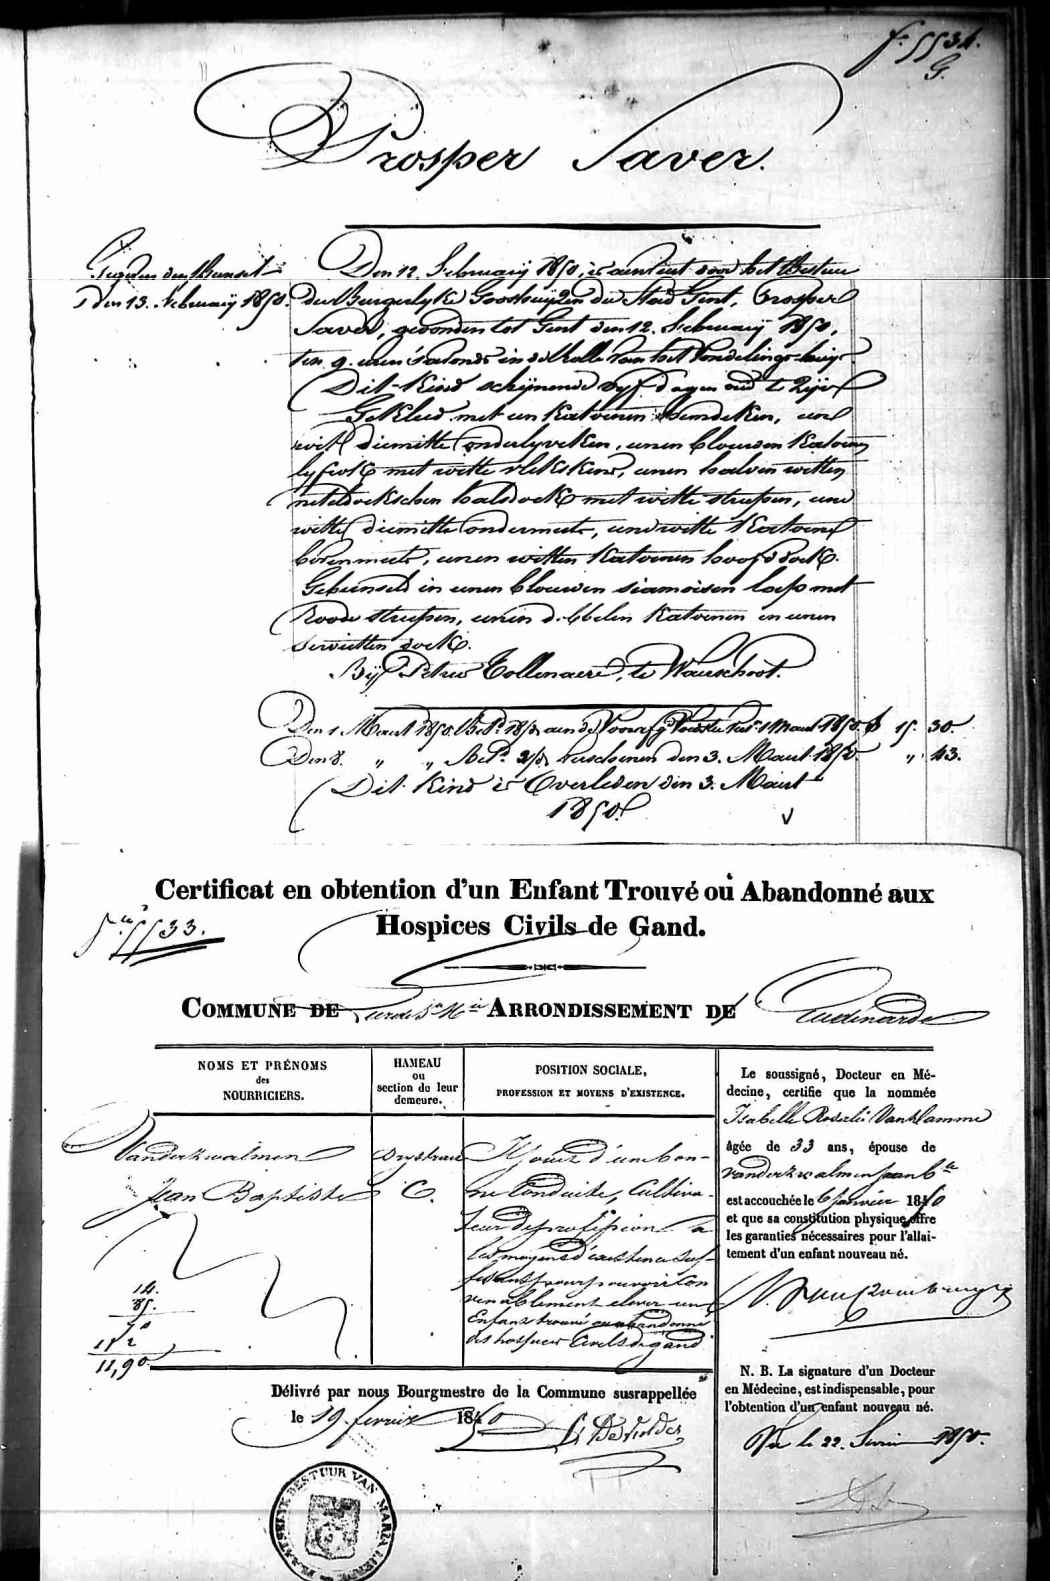 f: 5534.
G.
Prosper Saver.
den 13. February 1850.
Den 12. February 1850, is door het Bestuur
der Burgerlyke Godshuyzen der Stad Gent, Prosper
Saver, gevonden tot Gent den 12. February 1850,
ten 9. uren s'avonds in de Rolle van het Vondelings-huys
Dit Kind schynende vyf dagen oud te zyn
Gekleed met een Katoenen hemdeken, een
wit diemitte onderlyveken, eenen blouwen Katoenen
met witte, eenen halven witten
neteldoekschen halsdoek met witte streepen, eene
witte diemitte ondermuts, eene witte Katoene
bovenmuts, eenen witten Katoenen hoofddoek.
Gebunseld in eenen blouwen siamoisen lap met
roode streepen, eenen Katoenen en eenen
servietten doek.
By Petrus Tollenaere, te Waerschoot.
Den 1 Maert 1850. 1 Maert 1850. 15. 30.
Den 8. " " den 3. Maert 1850. " 43.
Dit Kind is Overleden den 3. Maert
1850.
Certificat en obtention d'un Enfant Trouvé ou Abandonné aux
5533.
Hospices Civils de Gand.
COMMUNE DE ARRONDISSEMENT DE Audenarde
NOMS ET PRÉNOMS
des
NOURRICIERS.
HAMEAU
ou
section de leur
demeure.
POSITION SOCIALE,
PROFESSION ET MOYENS D'EXISTENCE.
Vanderkwalmen
Jean Baptiste
C.
Il jouit d'une bon-
ne Conduite, Cultiva-
teur de profession a
les moyens d'existence suf-
fisants pour pouvoir con
venablement elever un
Enfant trouvé ou abandonné
des hospices Civils de gand
14.
85.
70
112
11,90
Le soussigné, Docteur en Mé-
decine, certifie que la nommée
Isabelle Rosalie Vandamme
âgée de 33 ans, épouse de
Vanderkwalmen Jean Bte
est accouchée le 6 janvier 1850
et que sa constitution physique offre
les garanties nécessaires pour l'allai-
tement d'un enfant nouveau né.
N. B. La signature d'un Docteur
en Médecine, est indispensable, pour
l'obtention d'un enfant nouveau né.
Vu le 22. 1850.
Délivré par nous Bourgmestre de la Commune susrappellée
le 19 fevrier 1850
PLAETSELYK BESTUUR VAN MARIA